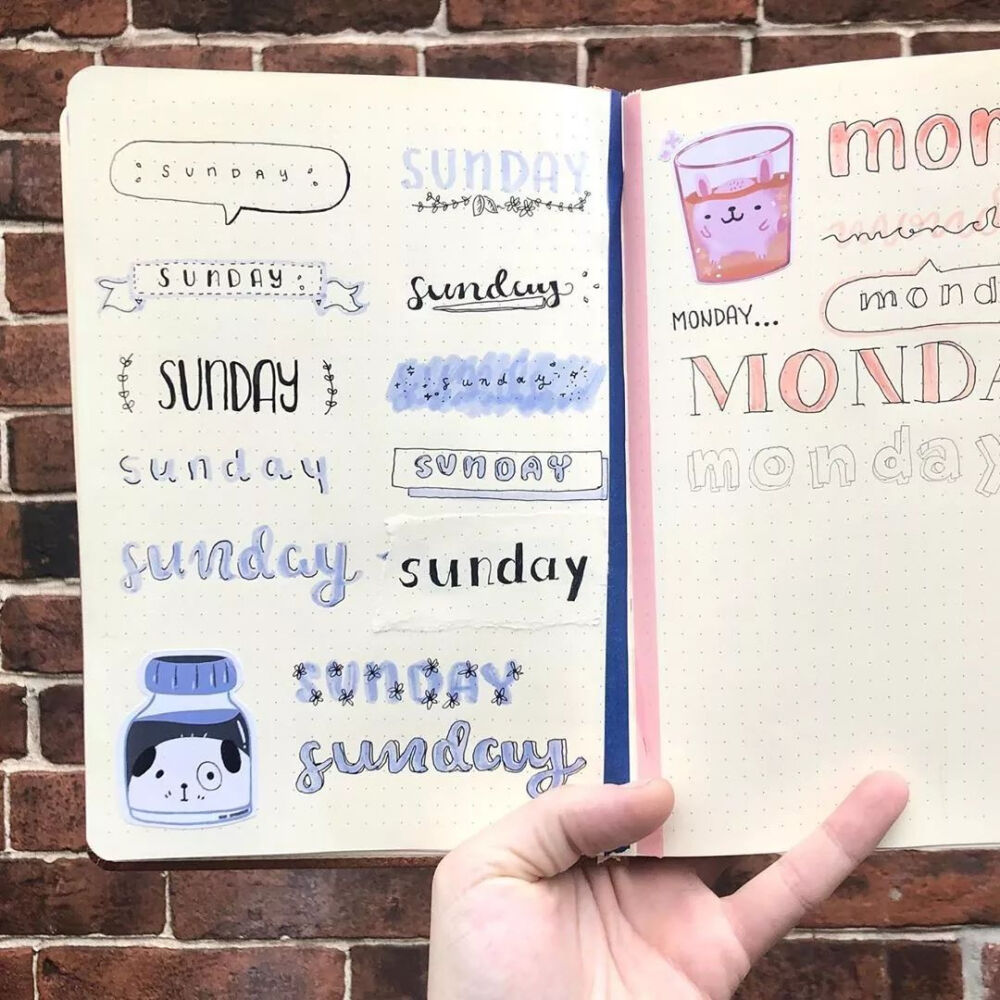 SUNDAY
SUNDAY
SUNDAY
sunday
SUNDAY
sunday
sunday
SUNDAY
sunday
sunday
SUNDAY
sunday
mon
mond
MONDAY...
mond
MONDA
monday